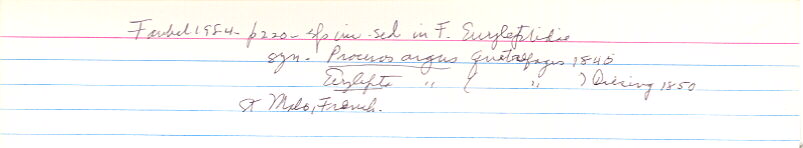 Faubel 1984 - p220 - sp inc. sed in F. Euryleptidae
syn. Proceros argus Quatrefages 1845
Eurylepta " ( " ) Diesing 1850
St Malo, French.